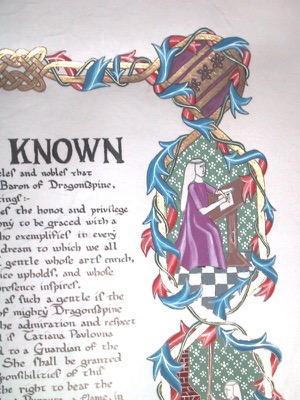 KNOWN
eles and nobles that
Baron of Dragonspine,
tings:-
es the honor and privilege
ony to be graced with a
ho exemplifies in every
dream to which we all
l gentle whose arts enrich,
ice upholds, and whose
presence inspires.
as such a gentle is the
of mighty Dragonspine
the admiration and respect
l is Tatiana Pavlovna
d to a Guardian of the
She shall be granted
sponsibilities of this
the right to bear the
a flame, in